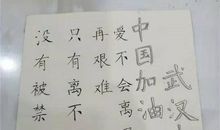 武汉
中国加油
爱不会离
再艰难
只有离不
没有被禁